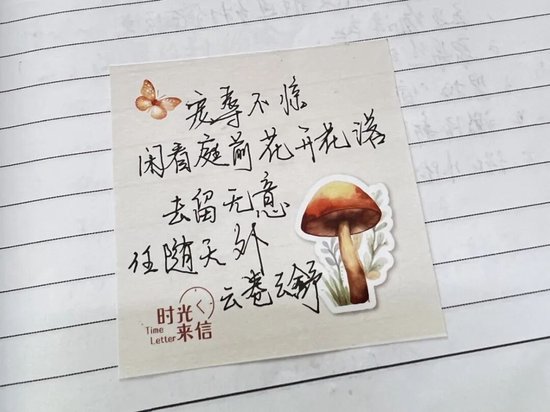 宠辱不惊
闲看庭前花开花落
去留无意
任随天外
云卷云舒
时光
Time
来信
Letter